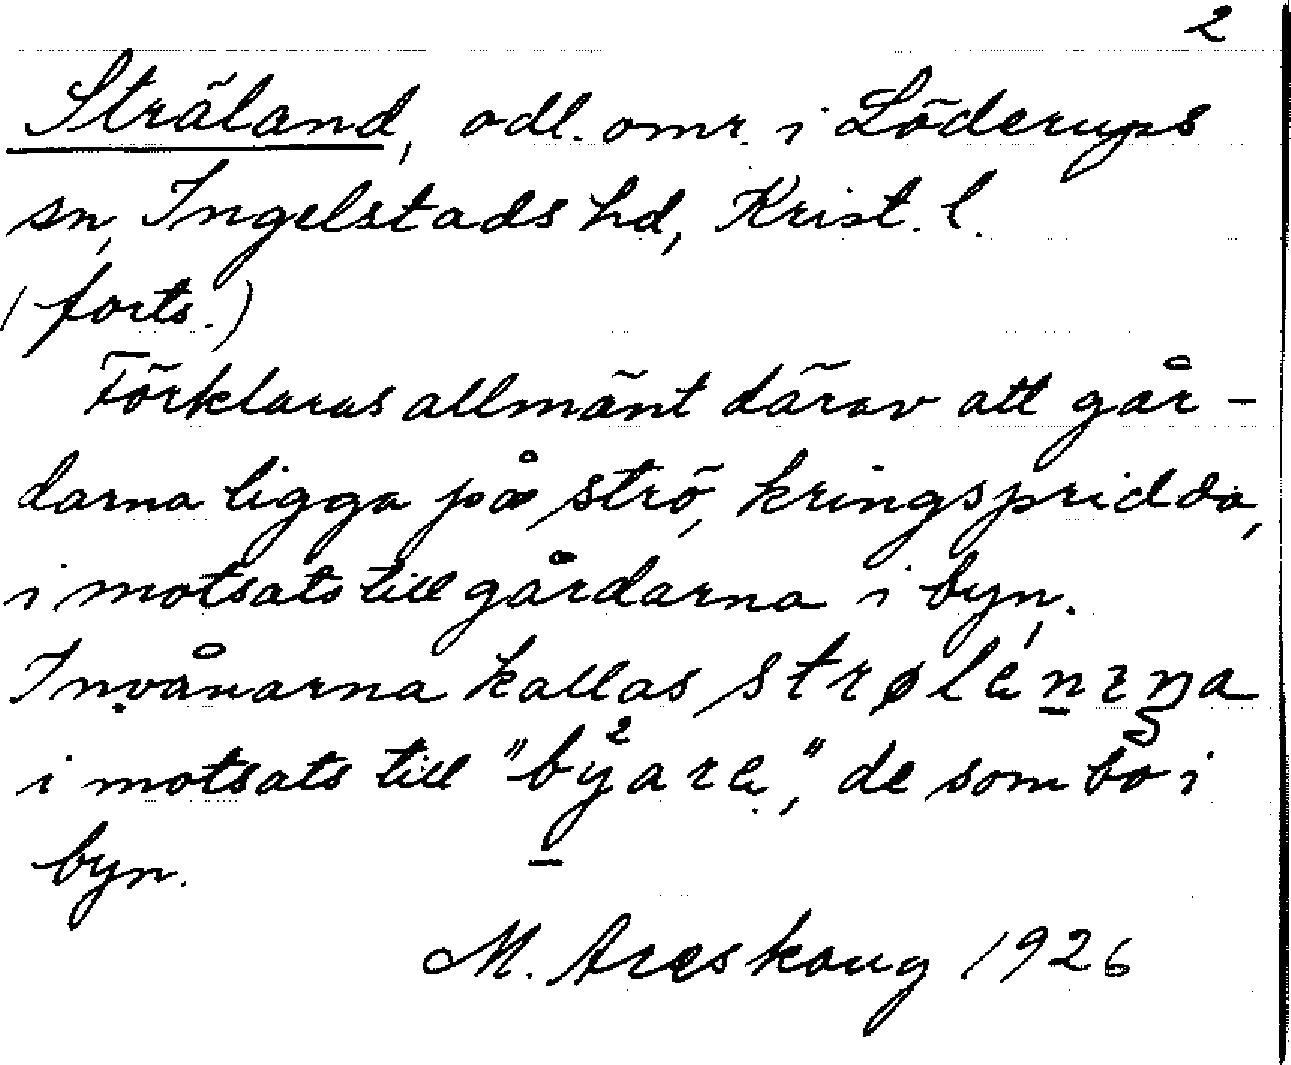 2
Sträland, odl. omr. i Löderups
sn, Ingelstads hd, Krist. l.
(forts.)
Förklaras allmänt därav att går-
darna ligga på strö, kringspridda,
i motsats till gårdarna i byn.
Invånarna kallas
i motsats till "byara", de som bo i
byn.
M. Areskoug 1926